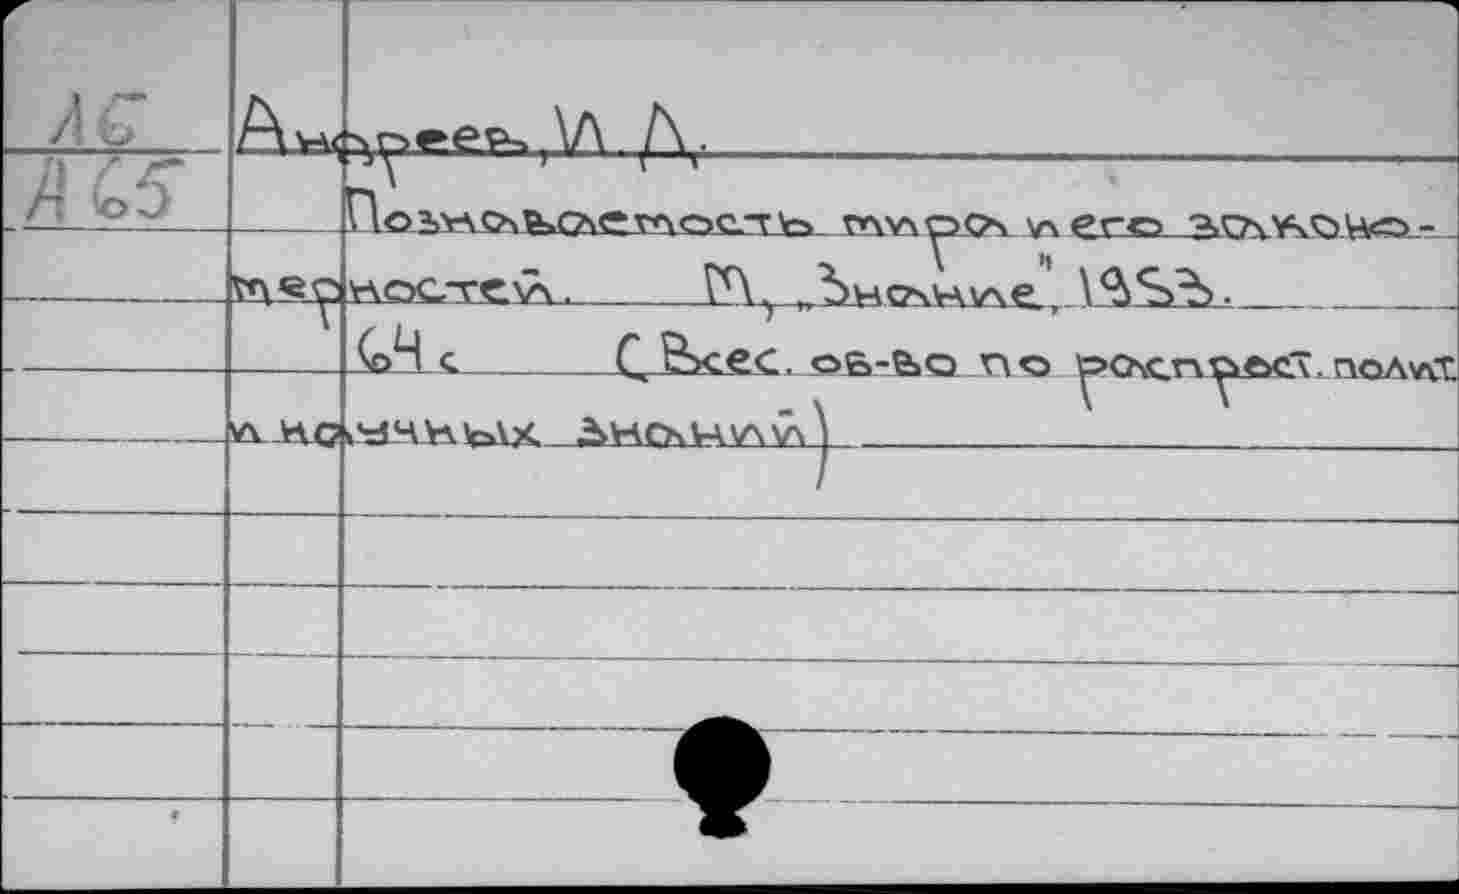 1Б
А65
Андреев, И. Д.
Познаваемость мира и его законо-
мерностей. М., „Знание", 1953.
64 с. (Всес. об-во по распрост. полит.
и научных знаний)